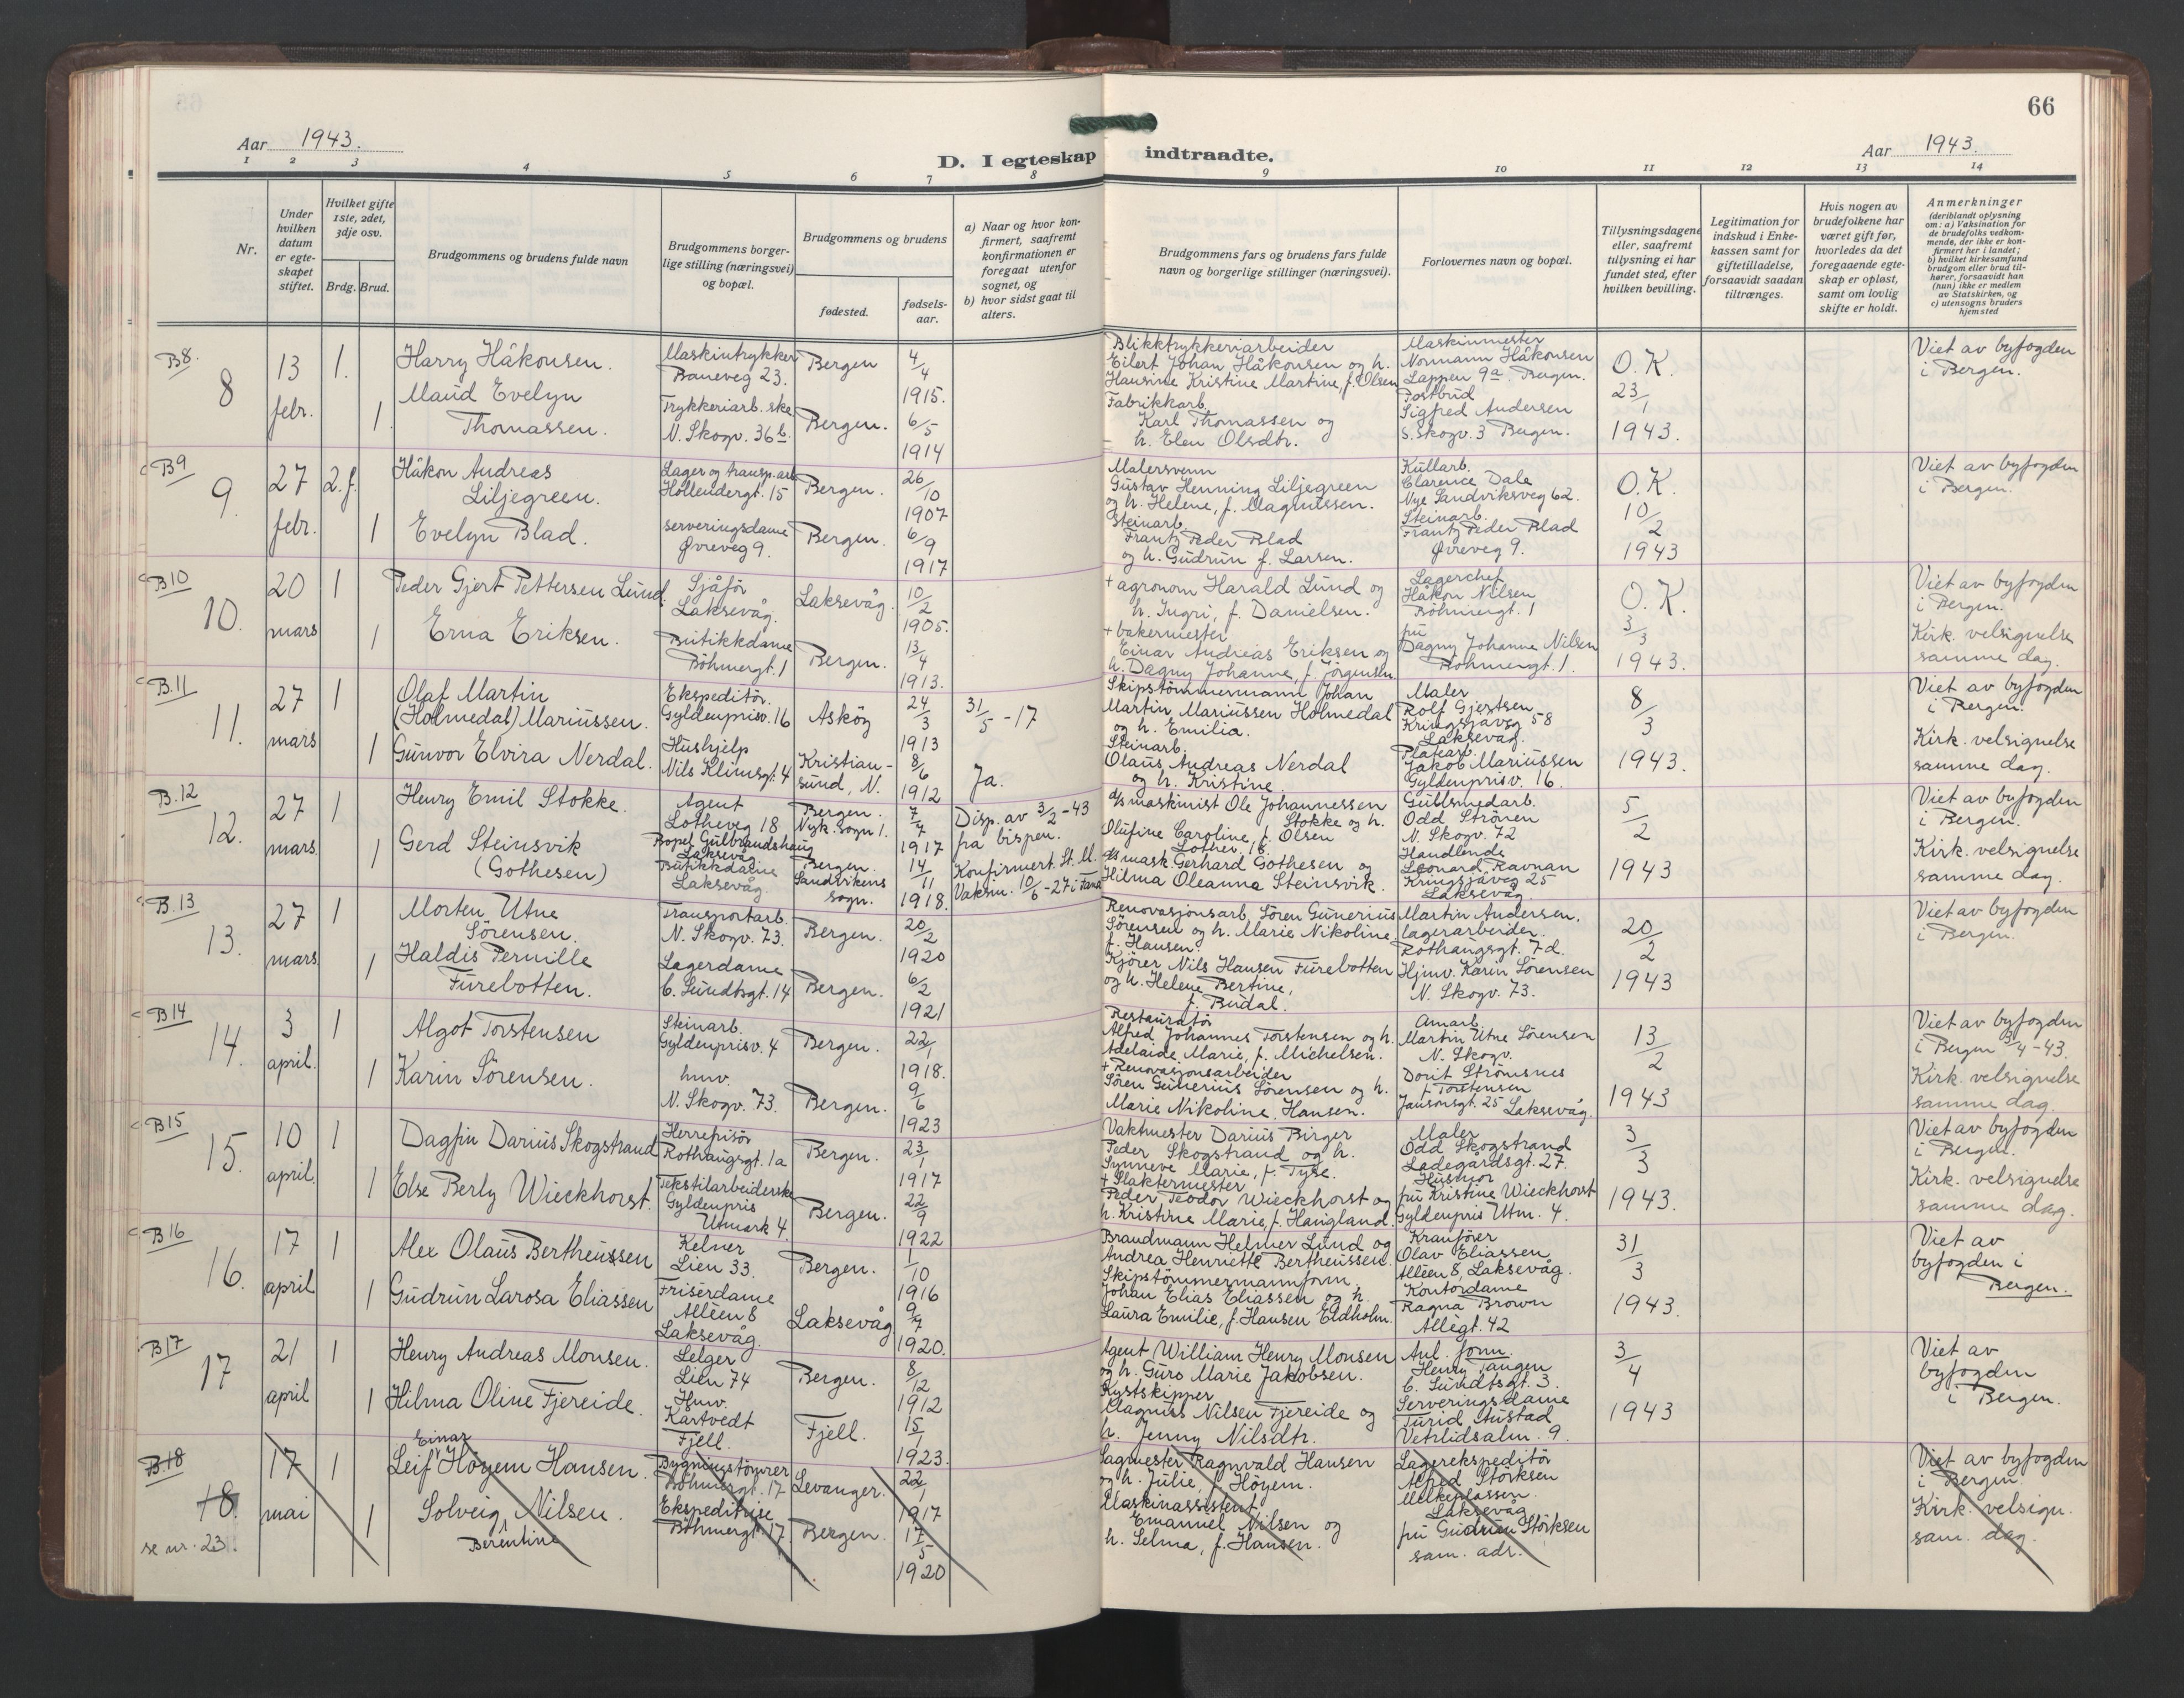 66
Aar 1943.
D. I egteskap indtraadte.
Aar 1943.
1 2 3 4 5 6 7 8 9 10 11 12 13 14
Nr.
Under hvilken datum er egteskapet stiftet.
Hvilket gifte 1ste, 2det, 3dje osv.
Brdg. Brud.
Brudgommens og brudens fulde navn
Brudgommens borgerlige stilling (næringsvei) og bopæl.
Brudgommens og brudens
fødested.
fødselsaar.
a) Naar og hvor konfirmert, saafremt konfirmationen er foregaat utenfor sognet, og
b) hvor sidst gaat til alters.
Brudgommens fars og brudens fars fulde navn og borgerlige stillinger (næringsvei).
Forlovernes navn og bopæl.
Tillysningsdagene eller, saafremt tillysning ei har fundet sted, efter hvilken bevilling.
Legitimation for indskud i Enkekassen samt for giftetilladelse, forsaavidt saadan tiltrænges.
Hvis nogen av brudefolkene har været gift før, hvorledes da det foregaaende egteskap er opløst, samt om lovlig skifte er holdt.
Anmerkninger
(deriblandt oplysning om: a) Vaksination for de brudefolks vedkommende, der ikke er konfirmert her i landet; b) hvilket kirkesamfund brudgom eller brud tilhører, forsaavidt han (hun) ikke er medlem av Statskirken, og c) utensogns bruders hjemsted
B8.
8
13 febr.
1.
1
Harry Håkonsen.
Maud Evelyn
Thomassen.
Maskintrykker
Baneveg 23.
Trykkeriarb.ske
N. Skogv. 36b.
Bergen
Bergen.
4/4
1915.
6/5
1914
Blikktrykkeriarbeider
Eilert Johan Håkonsen og h.
Hansine Kristine Martine, f. Olsen
Fabrikkarb.
Karl Thomassen og
h. Elen Olsdtr.
Maskinmester
Normann Håkonsen
Lappen 9a. Bergen.
Postbud
Sigfred Andersen
S. Skogv. 3 Bergen.
O.K.
23/1
1943.
Viet av byfogden
i Bergen.
B9
9.
27 febr.
2.f.
1
Håkon Andreas
Liljegreen.
Evelyn Blad.
Lager og transp.arb.
Hollendergt. 15
serveringsdame
Øvreveg 9.
Bergen.
Bergen.
26/10
1907
6/9
1917
Malersvenn
Gustav Henning Liljegreen
og h. Helene, f. Magnussen.
Steinarb.
Frantz Peder Blad
og h. Gudrun f. Larsen.
Kullarb.
Clarence Dale
Nye Sandviksveg 62.
Steinarb.
Frantz Peder Blad
Øvreveg 9.
O.K.
10/2
1943
Viet av byfogden
i Bergen.
B10
10.
20 mars
1
1
Peder Gjert Pettersen Lund.
Erna Eriksen.
Sjåfór
Laksevåg.
Butikkdame
Böhmergt. 1
Laksevåg.
Bergen.
10/2
1905.
13/4
1913.
+ agronom Harald Lund og
h. Ingri, f. Danielsen.
+ bakermester
Einar Andreas Eriksen og
h. Dagny Johanne, f. Jörgensen.
Lagerchef
Håkon Nilsen
Böhmergt. 1
fru
Dagny Johanne Nilsen
Böhmergt. 1.
O.K.
3/3
1943.
Viet av byfogden
i Bergen.
Kirk. velsignelse
samme dag.
B.11
11.
27 mars
1
1
Olaf Martin
(Holmedal) Mariussen.
Gunvor Elvira Nerdal.
Ekspeditör.
Gyldenprisv. 16
Hushjelp
Nils Klimsgt. 4
Asköy
Kristiansund, N.
24/3
1913
8/6
1912
31/5 - 17
Ja.
Skipstömmermann Johan
Martin Mariussen Holmedal
og h. Emilia.
Steinarb.
Olaus Andreas Nerdal
og h. Kristine
Maler
Rolf Gjertsen
Kringsjåveg 58
Laksevåg.
Platearb.
Jakob Mariussen
Gyldenprisv. 16.
8/3
1943.
Viet av byfogden
i Bergen.
Kirk. velsignelse
samme dag.
B.12
12.
27 mars.
1
1
Henry Emil Stokke.
Gerd Steinsvik
(Gothesen)
Agent
Lotheveg 18
Bopel Gulbrandshaug
Laksevåg
Butikkdame
Laksevåg.
Bergen.
Nyk. sogn 1.
Bergen.
Sandvikens
sogn.
7/7
1917
14/11
1918.
Disp. av 3/2 - 43
fra bispen.
Konfirmert. St. M.
Vaksin. 10/6 - 27 i Fana
d/s maskinist Ole Johannessen
Stokke og h.
Olufine Caroline, f. Olsen
Lothev. 18.
d/s mask. Gerhard Gothesen og
Hilma Oleanna Steinsvik.
Gullsmedarb.
Odd Strönen
N. Skogv. 72
Handlende
Leonard Ravnan
Kringsjåveg 25
Laksevåg.
5/2
1943
Viet av byfogden
i Bergen.
Kirk. velsignelse
samme dag.
B.13
13.
27 mars.
1
1
Morten Utne
Sörensen.
Haldis Pernille
Furebotten.
Transportarb.
N. Skogv. 73.
Lagerdame
C. Sundtsgt. 14
Bergen.
Bergen.
20/2
1920
6/2
1921
Renovasjonsarb. Sören Gunerius
Sörensen og h. Marie Nikoline,
f. Hansen.
Kjörer Nils Hansen Furebotten
og h. Helene Bertine,
f. Budal.
Martin Andersen.
lagerarbeider.
Rothaugsgt. 7 d.
Hjmv. Karin Sörensen
N. Skogv. 73.
20/2
1943
Viet av byfogden
i Bergen.
B14
14.
3 april.
1
1
Algot Torstensen
Karin Sörensen.
Steinarb.
Gyldenprisv. 4
hmv.
N. Skogv. 73.
Bergen.
Bergen.
22/1
1918.
9/6
1923
Restauratör
Alfred Johannes Torstensen og h.
Adelaide Marie, f. Michelsen.
+ Renovasjonsarbeider
Sören Gunerius Sörensen og h.
Marie Nikoline Hansen.
Amarb.
Martin Utne Sörensen
N. Skogv.
Dorit Strömsnes
f. Torstensen
Jansonsgt. 25 Laksevåg.
13/2
1943
Viet av byfogden
i Bergen 3/4 - 43.
Kirk. velsignelse
samme dag.
B15
15.
10 april.
1
1
Dagfin Darius Skogstrand
Else Berly Wieckhorst.
Herrefrisör
Rothaugsgt. 1a
Tekstilarbeiderske
Gyldenpris
Utmark 4.
Bergen.
Bergen.
23/1
1917
22/9
1922
Vaktmester Darius Birger
Peder Skogstrand og h.
Synneve Marie, f. Tyse.
+ Slaktermester
Peder Teodor Wieckhorst og
h. Kristine Marie, f. Haugland.
Maler
Odd Skogstrand
Ladegårdsgt. 27.
Husmor
fru Kristine Wieckhorst
Gyldenpris Utm. 4.
3/3
1943.
Viet av byfogden
i Bergen.
Kirk. velsignelse
samme dag.
B16
16.
17 april
1
1
Alex Olaus Bertheussen
Gudrun Larosa Eliassen
Kelner
Lien 33.
Frisérdame
Alléen 8
Laksevåg.
Bergen.
Laksevåg
1/10
1916
9/7
1920.
Brandmann Helmer Lund og
Andrea Henriette Bertheussen.
Skipstömmermannform.
Johan Elias Eliassen og h.
Laura Emilie, f. Hansen Eldholm.
Kranförer
Olav Eliassen
Alléen 8, Laksevåg.
Kontordame
Ragna Brown
Allégt. 42
31/3
1943.
Viet av
byfogden i
Bergen.
B17
17
21 april
1
1
Henry Andreas Monsen.
Hilma Oline Fjereide.
Selger
Lien 74
Hmv.
Kårtvedt
Fjell.
Bergen.
Fjell.
8/12
1912
15/1
1923.
Agent William Henry Monsen
og h. Guro Marie Jakobsen.
Kystskipper
Magnus Nilsen Fjereide og
h. Jenny Nilsdtr.
Anl. form.
Henry Tangen
C. Sundtsgt. 3.
Serveringsdame
Turid Austad
Vetrlidsalm. 9.
3/4
1943
Viet av
byfogden
i Bergen.
B.18
18.
se nr. 23.
17 mai
1
1
Einar
Leif Höyem Hansen.
Solveig Nilsen.
Berentine
Bygningstömrer
Böhmergt. 17
Ekspeditrise
Böhmergt. 17.
Levanger.
Bergen.
22/1
1917
17/5
1920
Sagmester Ragnvald Hansen
og h. Julie, f. Höyem.
Maskinassistent
Emanuel Nilsen og
h. Selma, f. Hansen.
Lagerekspeditör
Alfred Störksen
Melkeplassen
Laksevåg
fru Gudrun Störksen
sam. adr.
Viet av byfogden
i Bergen
Kirk. velsign.
sam. dag.